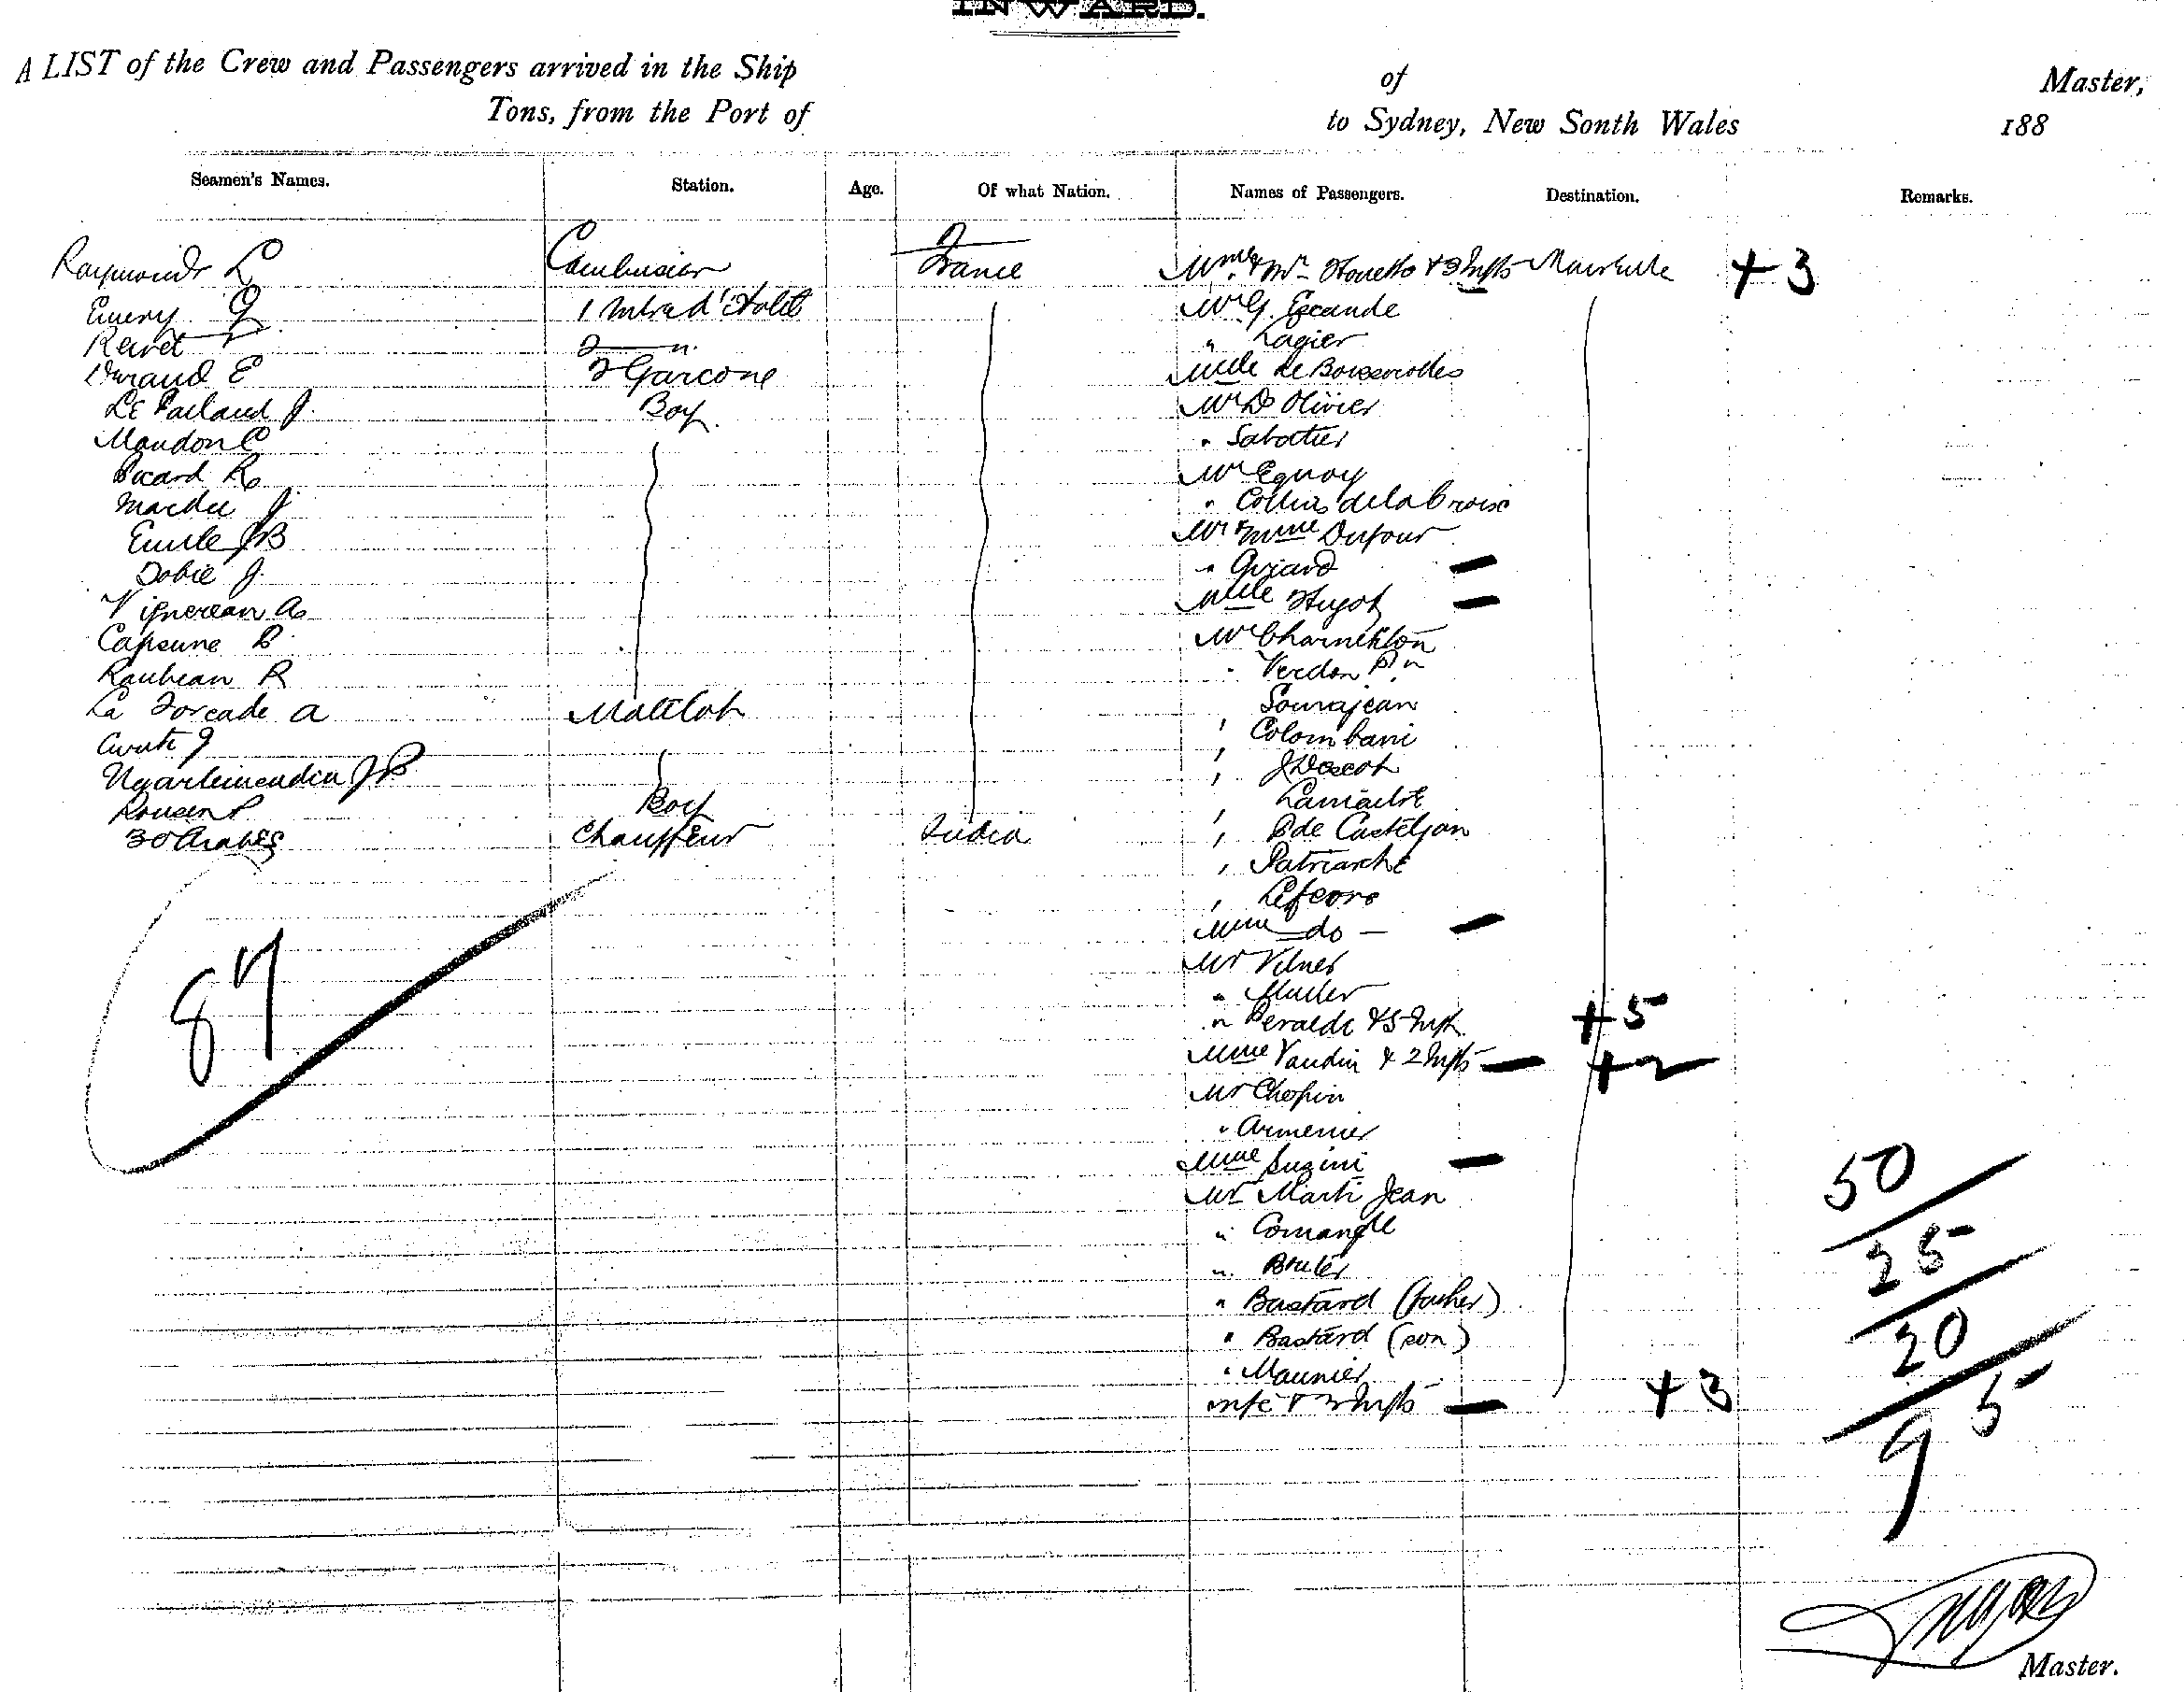 INWARD.
A LIST of the Crew and Passengers arrived in the Ship of Master,
Tons, from the Port of to Sydney, New South Wales 188
Seamen's Names. Station. Age. Of what Nation. Names of Passengers. Destination. Remarks.
Raymond L Cambusier France Mme & Mr & 3 Infts Marseille +3
Emery 1 Mtre d'Hotel Mr G. Escande
2 " " Lagier
Durand E 2 Garcone Melle de
J. Boy Mr D Olivier
Maudon C " Sabatier
Picard R Mr Equoy
J " Collin de la Croix
Emile JB Mr & Mme Dufour
Dobie J. " Guiard —
Vignereau A Melle Hugot —
Capeune B Mr Charnelton
Raubean R " Verdon P
La Forcade A Matelot Sourajean
J ' Colombani
JB ' J
P Boy ' Lamaitre
30 Arabes Chauffeur India ' P de Casteljan
' Patriarche
' Lefevre
Mme do — —
Mr Vilner
" Muller
" Peraldi & 5 Inft. +5
Mme Vaudin & 2 Infts — +2
87
Mr Chopin
" Armenier
Mme Suzini —
Mr Marti Jean
"
"
" Bastard (father)
" Bastard (son)
" Maunier
wife & 3 Infts — +3
50
25
20
95
Master.